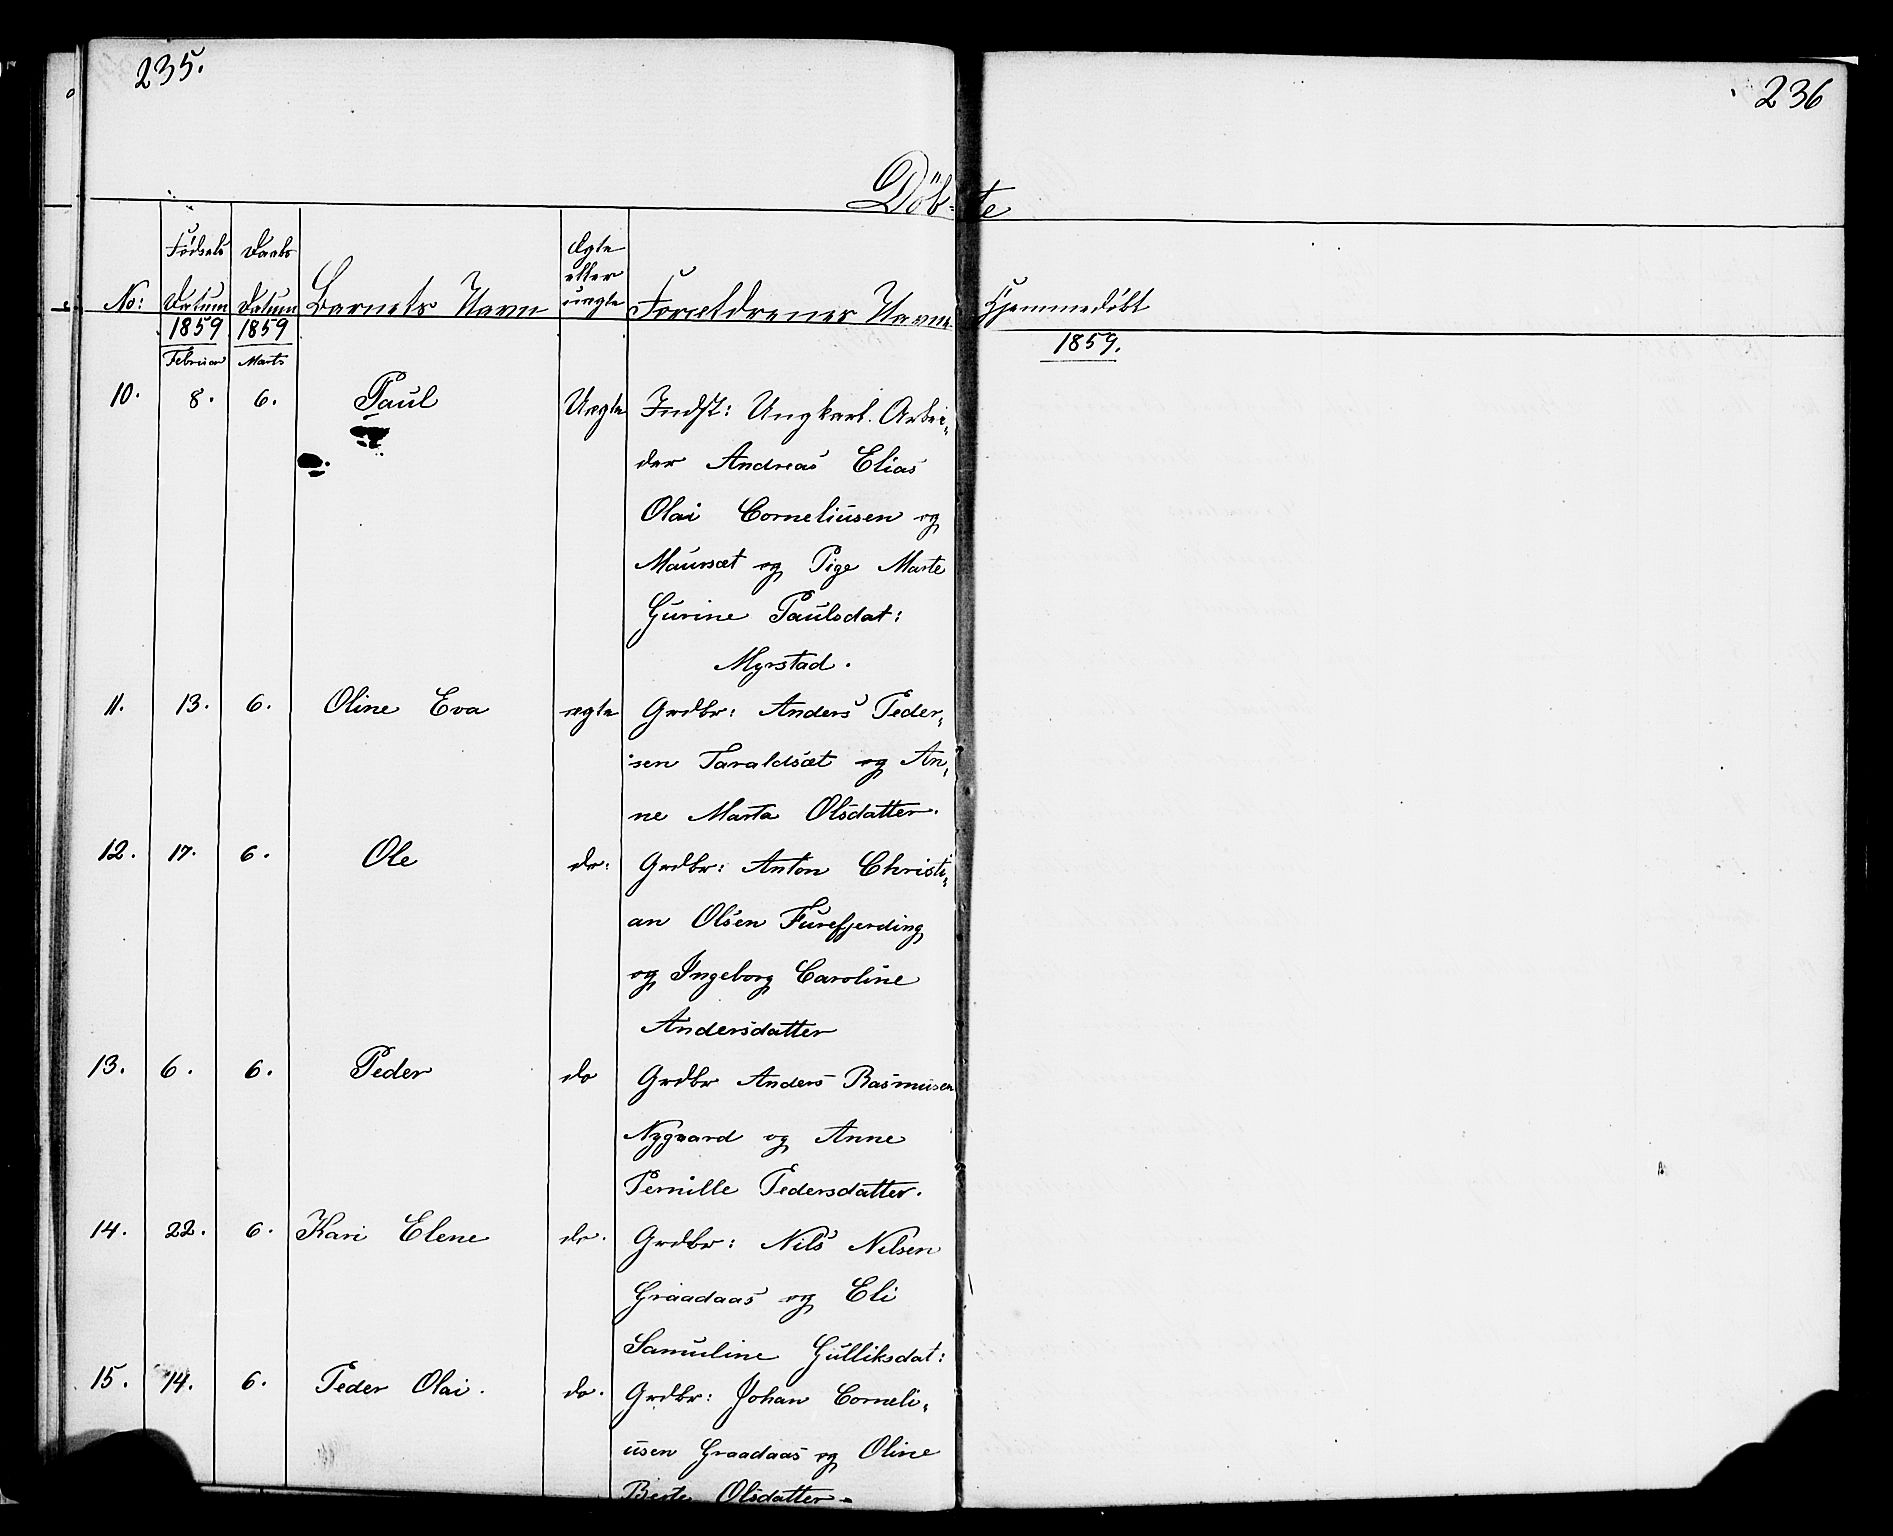 235.
236
Döb-te
No: Fødsels Datum Daabs Datum Barnets Navn Ægte eller uægte Forældrenes Navne Hjemmedöbt
1859 1859 1859.
Februar Marts
10. 8. 6. Paul Uægte Indst: Ungkarl. Arbei-
der Andreas Elias
Olai Corneliusen og
Maursæt og Pige Marte
Gurine Paulsdat:
Myrstad.
11. 13. 6. Oline Eva ægte Grdbr: Anders Peder-
sen Taraldsæt og An-
ne Marta Olsdatter.
12. 17. 6. Ole do: Grdbr: Anton Christi-
an Olsen Furefjerding
og Ingeborg Caroline
Andersdatter
13. 6. 6. Peder do Grdbr Anders Rasmusen
Nygaard og Anne
Pernille Pedersdatter.
14. 22. 6. Kari Elene do. Grdbr: Nils Nilsen
Graadaas og Eli
Samuline Gulliksdat:
15. 14. 6. Peder Olai. do. Grdbr: Johan Corneli-
usen Graadaas og Oline
Berte Olsdatter.